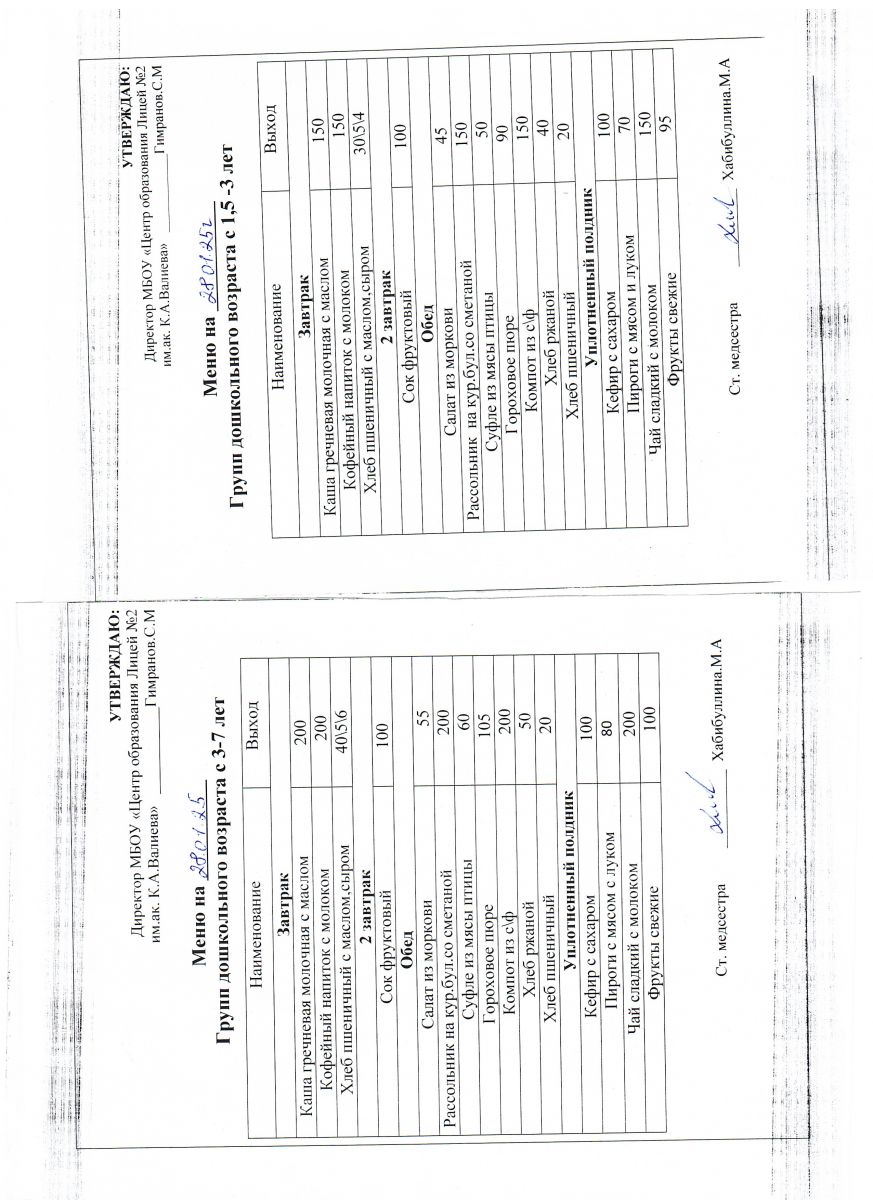 УТВЕРЖДАЮ:
Директор МБОУ «Центр образования Лицей №2
им.ак. К.А.Валиева» ____________Гимранов.С.М
Меню на 28.01.25
Групп дошкольного возраста с 3-7 лет
Наименование Выход
Завтрак
Каша гречневая молочная с маслом 200
Кофейный напиток с молоком 200
Хлеб пшеничный с маслом,сыром 40\5\6
2 завтрак
Сок фруктовый 100
Обед
Салат из моркови 55
Рассольник на кур.бул.со сметаной 200
Суфле из мясы птицы 60
Гороховое пюре 105
Компот из с\ф 200
Хлеб ржаной 50
Хлеб пшеничный 20
Уплотненный полдник
Кефир с сахаром 100
Пироги с мясом с луком 80
Чай сладкий с молоком 200
Фрукты свежие 100
Ст. медсестра ____________ Хабибуллина.М.А
УТВЕРЖДАЮ:
Директор МБОУ «Центр образования Лицей №2
им.ак. К.А.Валиева» ____________Гимранов.С.М
Меню на 28.01.25г
Групп дошкольного возраста с 1,5 -3 лет
Наименование Выход
Завтрак
Каша гречневая молочная с маслом 150
Кофейный напиток с молоком 150
Хлеб пшеничный с маслом,сыром 30\5\4
2 завтрак
Сок фруктовый 100
Обед
Салат из моркови 45
Рассольник на кур.бул.со сметаной 150
Суфле из мясы птицы 50
Гороховое пюре 90
Компот из с\ф 150
Хлеб ржаной 40
Хлеб пшеничный 20
Уплотненный полдник
Кефир с сахаром 100
Пироги с мясом и луком 70
Чай сладкий с молоком 150
Фрукты свежие 95
Ст. медсестра ____________ Хабибуллина.М.А